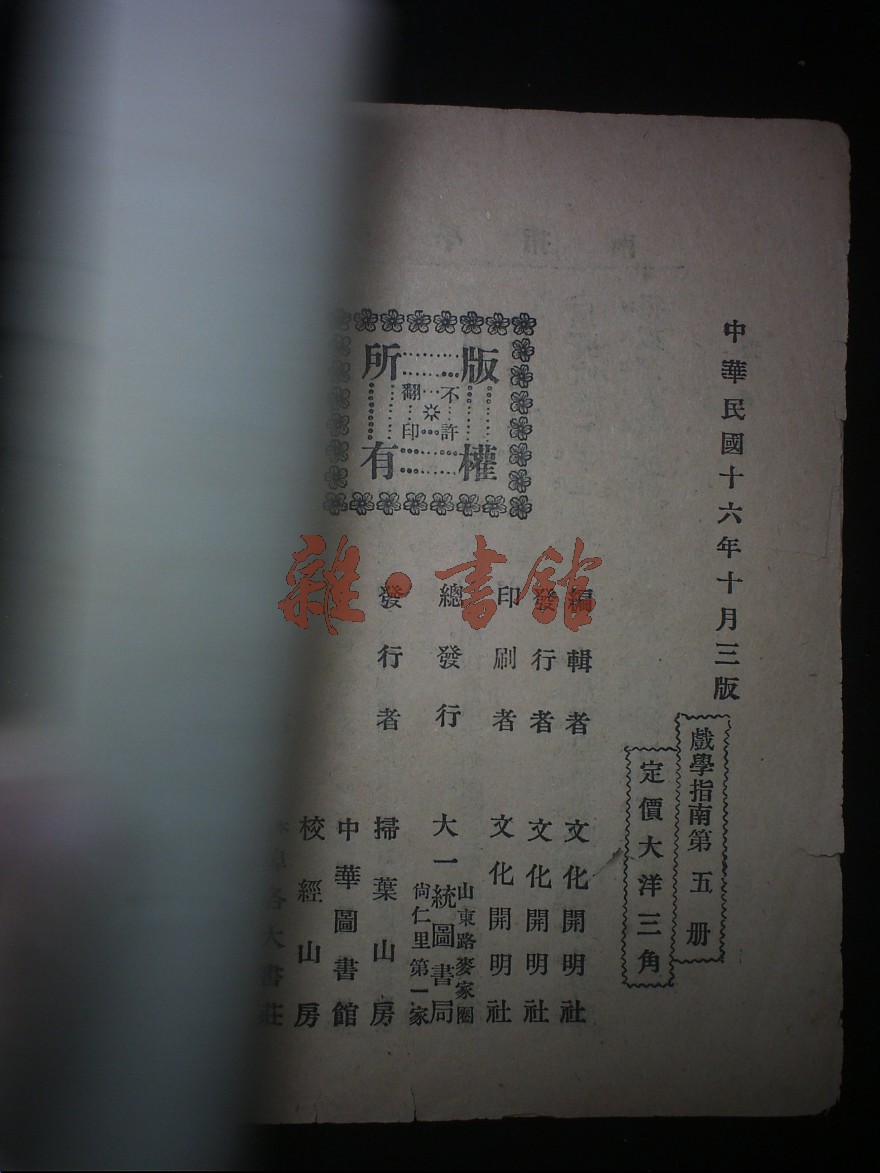 中華民國十六年十月三版
戲學指南第五册
定價大洋三角
編輯者 文化開明社
發行者 文化開明社
印刷者 文化開明社
總發行 大一統圖書局
山東路麥家圈
尙仁里第一家
發行者 掃葉山房
中華圖書館
校經山房
各大書莊
版權所有
不許翻印
雜·書館